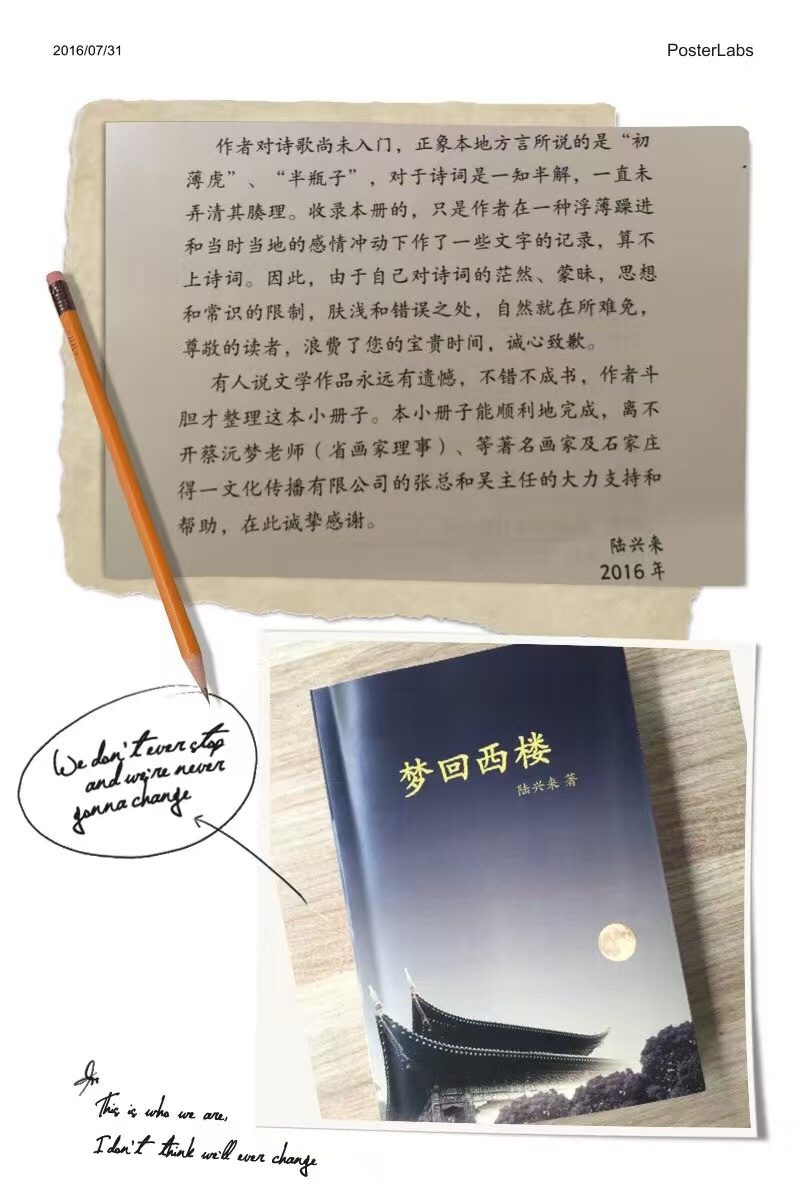 2016/07/31
PosterLabs
作者对诗歌尚未入门，正象本地方言所说的是“初
薄虎”、“半瓶子”，对于诗词是一知半解，一直未
弄清其腠理。收录本册的，只是作者在一种浮薄躁进
和当时当地的感情冲动下作了一些文字的记录，算不
上诗词。因此，由于自己对诗词的茫然、蒙昧，思想
和常识的限制，肤浅和错误之处，自然就在所难免，
尊敬的读者，浪费了您的宝贵时间，诚心致歉。
有人说文学作品永远有遗憾，不错不成书，作者斗
胆才整理这本小册子。本小册子能顺利地完成，离不
开蔡沅梦老师（省画家理事）、等著名画家及石家庄
得一文化传播有限公司的张总和吴主任的大力支持和
帮助，在此诚挚感谢。
陆兴来
2016 年
We don't ever stop
and we're never
gonna change
梦回西楼
陆兴来 著
This is who we are,
I don't think we'll ever change